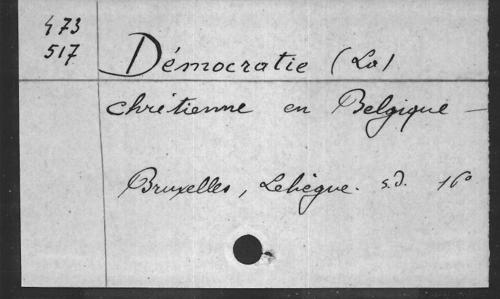 473
517
Démocratie (La)
chrétienne en Belgique —
Bruxelles, Lebègue. s.d. 16°